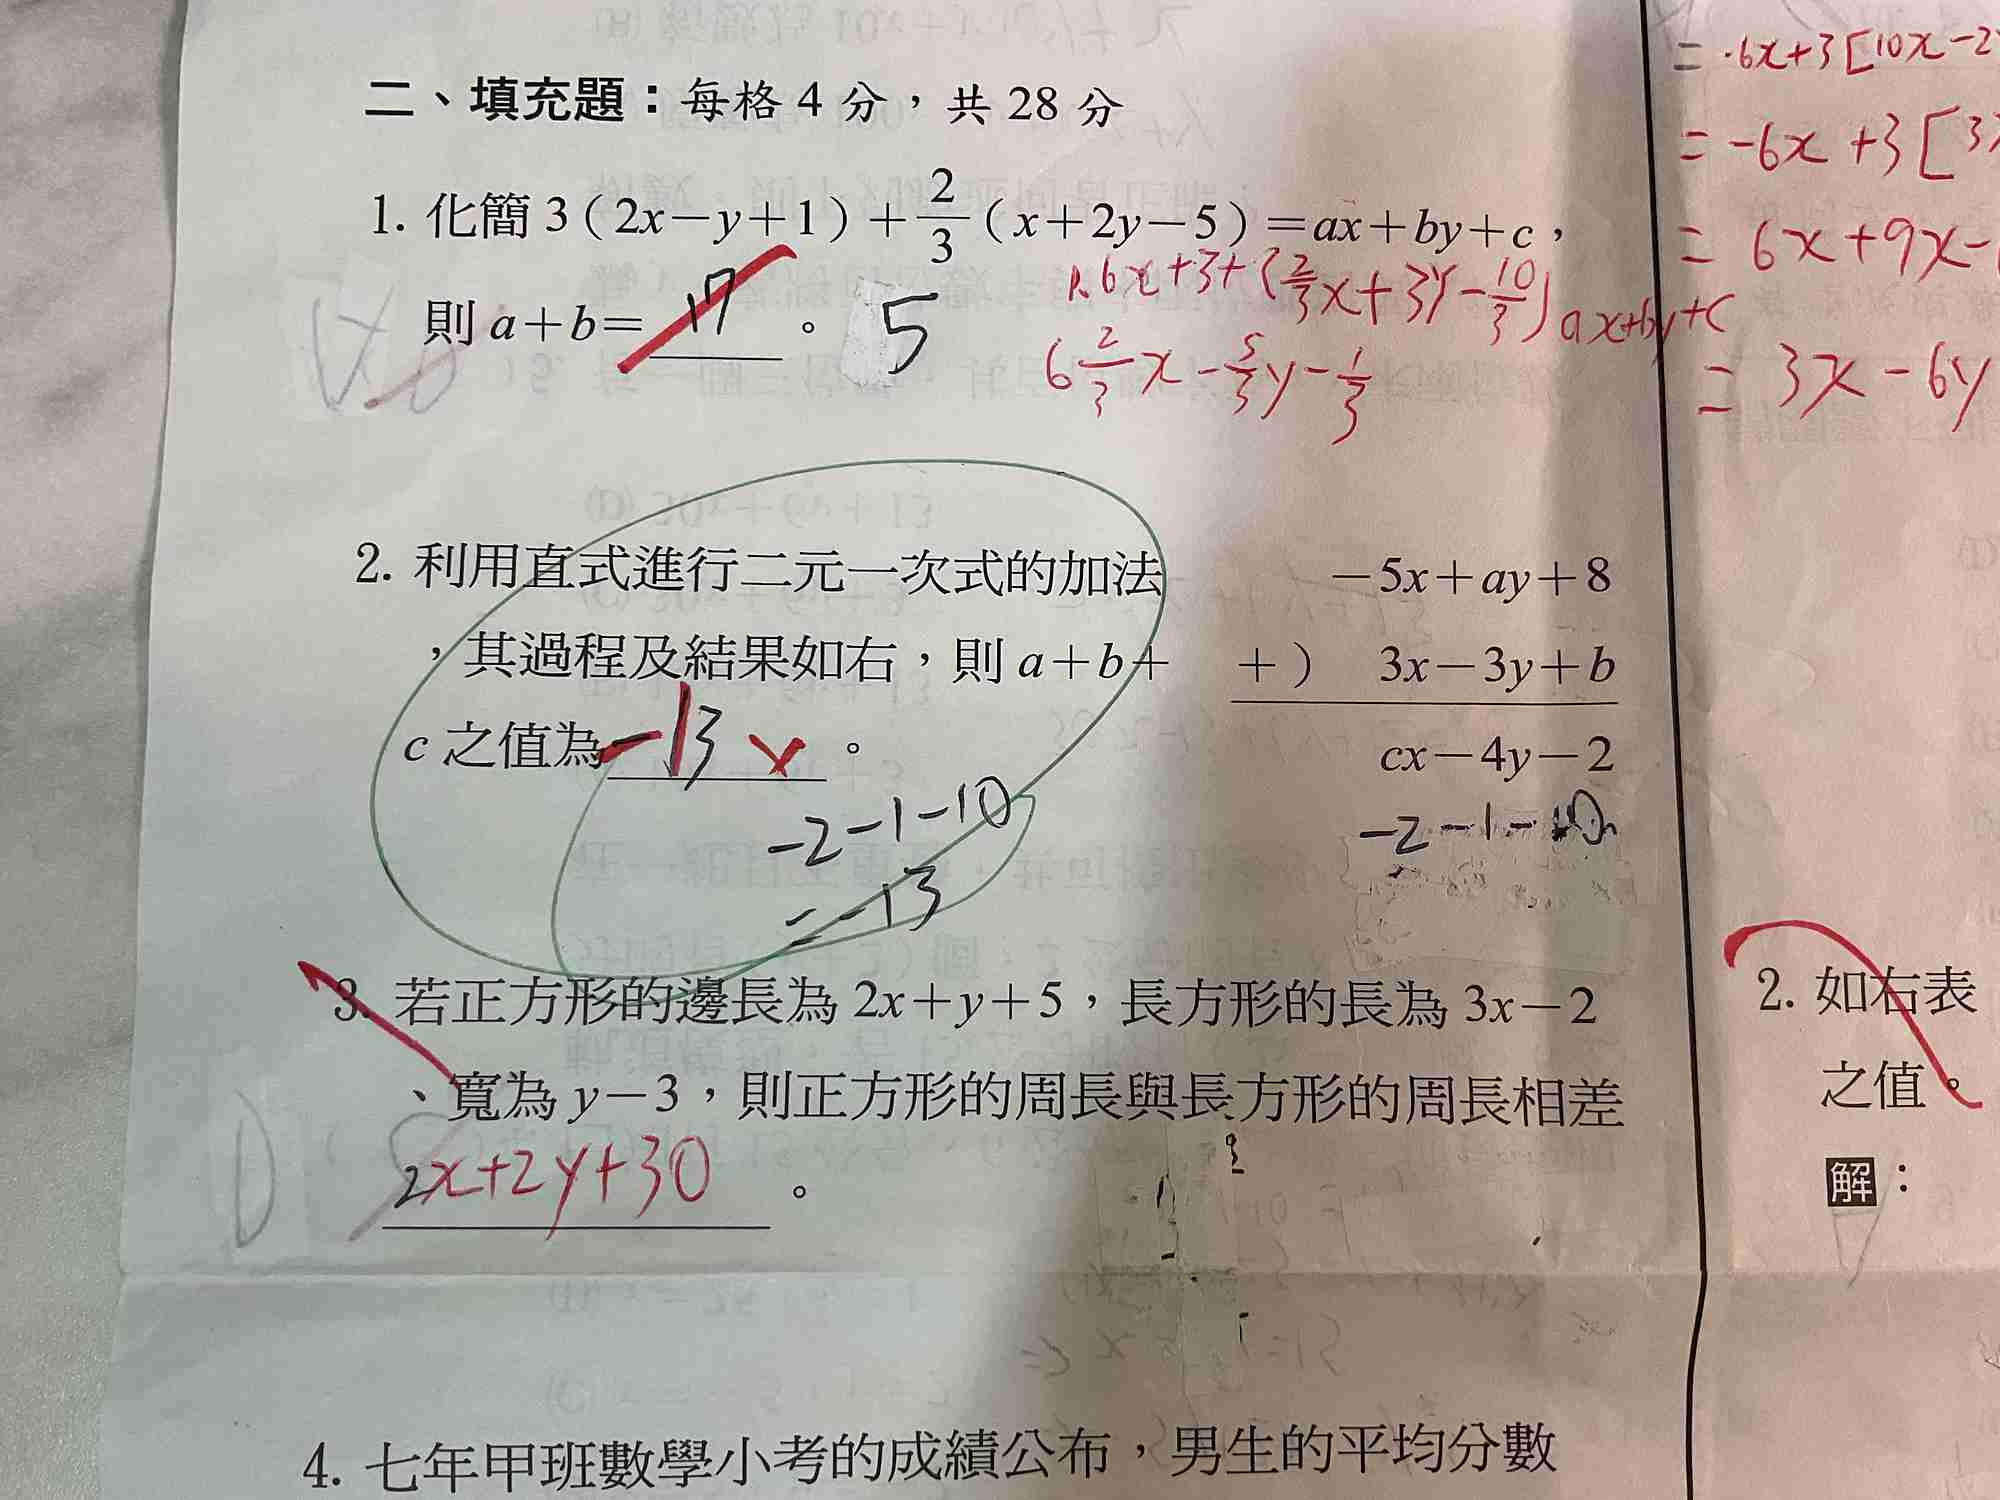 二、填充題：每格 4 分，共 28 分
1. 化簡 3（2x－y＋1）＋2/3（x＋2y－5）＝ax＋by＋c，
則 a＋b＝ 17 。 5
6x+3+(2/3x+3y-10/3) ax+by+c
6 2/3 x - 5/3 y - 1/3
2. 利用直式進行二元一次式的加法
，其過程及結果如右，則 a＋b＋
c 之值為 -13 。
-2-1-10
=-13
－5x＋ay＋8
＋） 3x－3y＋b
cx－4y－2
-2-1-10
3. 若正方形的邊長為 2x＋y＋5，長方形的長為 3x－2
、寬為 y－3，則正方形的周長與長方形的周長相差
2x+2y+30 。
4. 七年甲班數學小考的成績公布，男生的平均分數
= -6x+3[10x-2
= -6x+3[3
= 6x+9x-
= 3x-6y
2. 如右表
之值。
解：